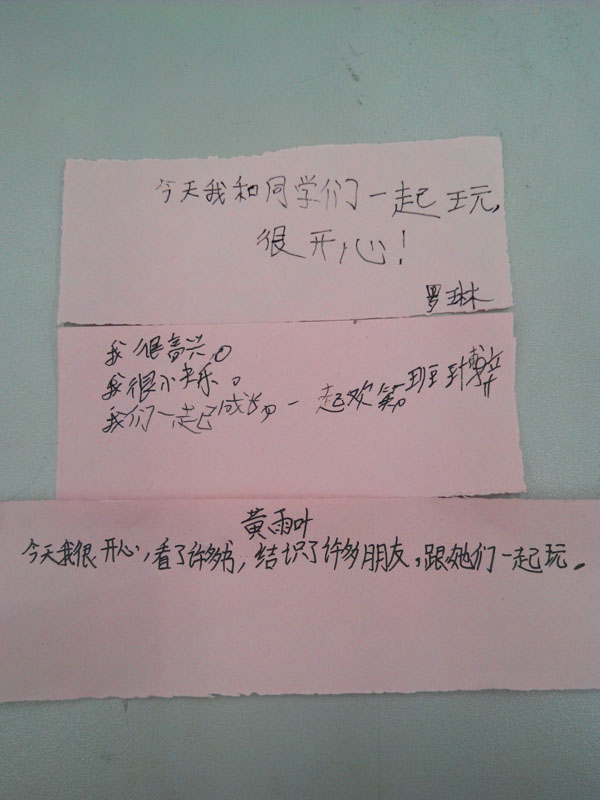 今天我和同学们一起玩,
很开心!
罗琳
我很高兴。
我很快乐。
我们一起成长,一起欢笑
黄雨叶
今天我很开心,看了许多书,结识了许多朋友,跟她们一起玩。